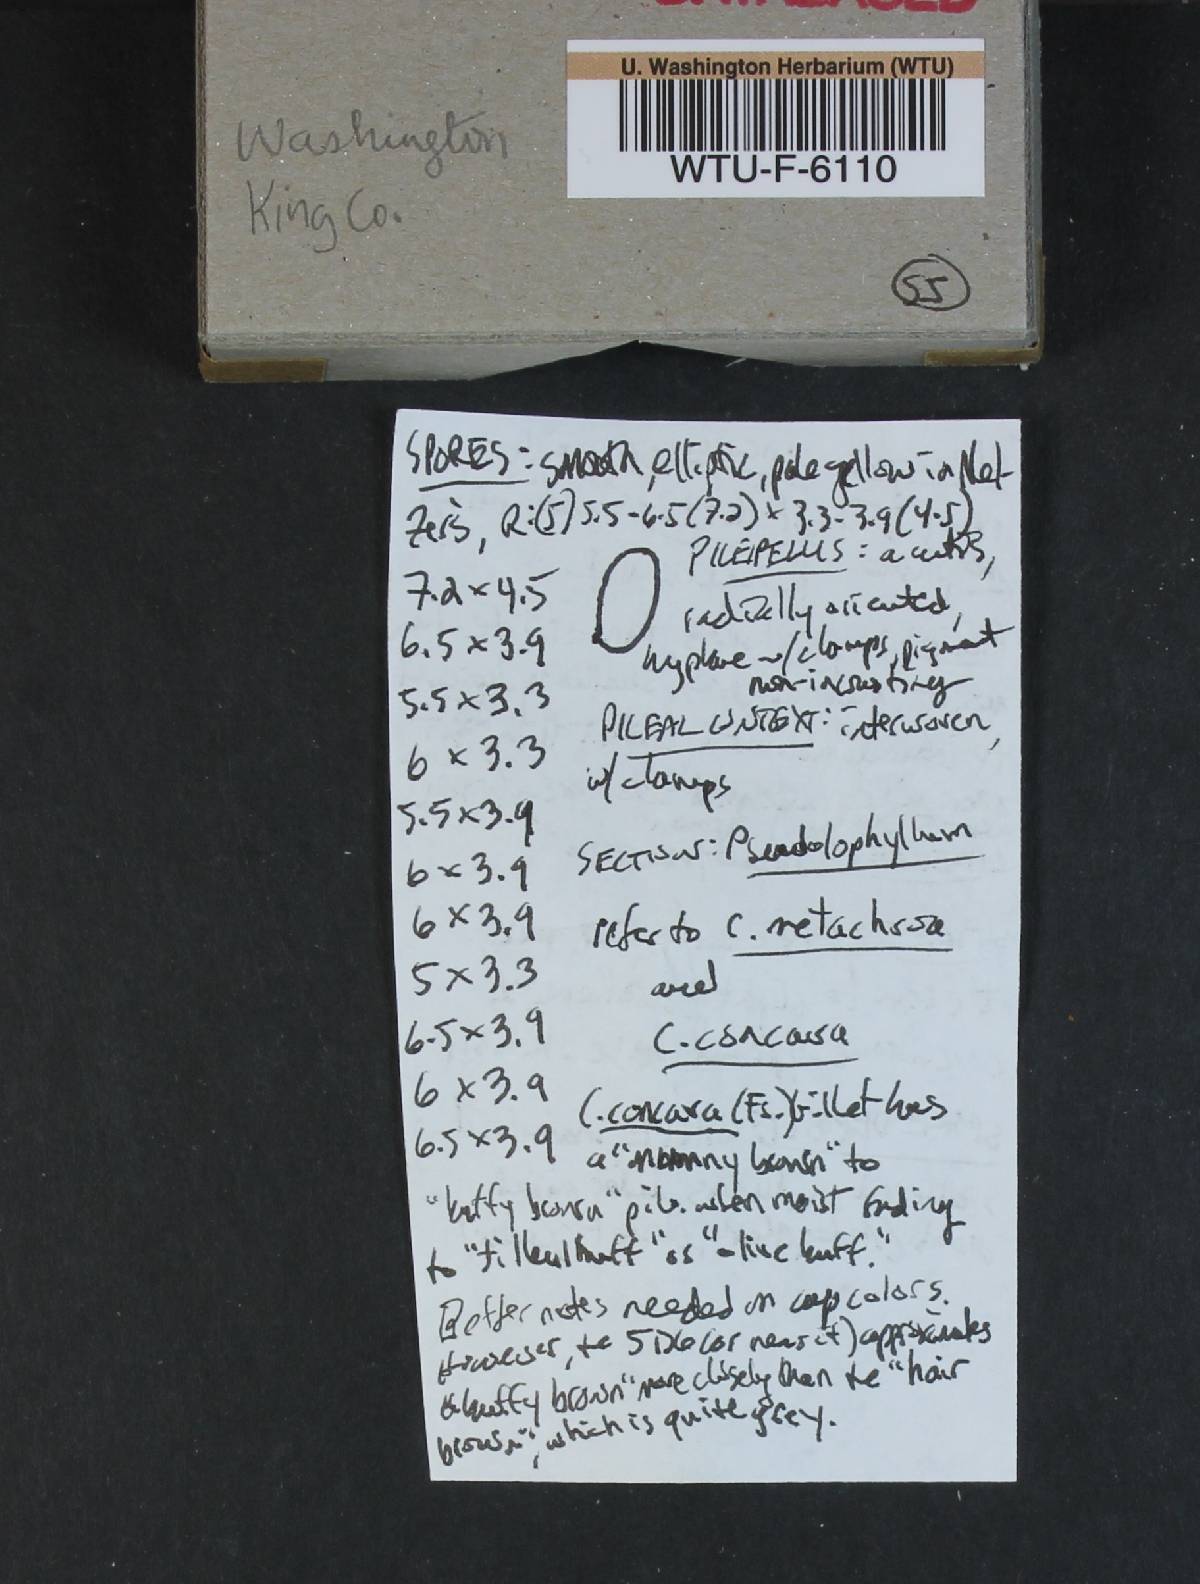 DATABASED
U. Washington Herbarium (WTU)
WTU-F-6110
Washington
King Co.
55
SPORES: smooth, elliptic, pale yellow in Mel-
zer's, R:(5)5.5-6.5(7.2) x 3.3-3.9(4.5)
PILEIPELLIS: a cutis,
radially oriented,
hyphae w/clamps, pigment
non-incrusting
PILEAL CONTEXT: interwoven,
w/ clamps
SECTION: Pseudolyophyllum
refer to C. metachroa
and
C. concava
7.2 x 4.5
6.5 x 3.9
5.5 x 3.3
6 x 3.3
5.5 x 3.9
6 x 3.9
6 x 3.9
5 x 3.3
6.5 x 3.9
6 x 3.9
6.5 x 3.9
C. concava (Fr.) Gillet has
a "mummy brown" to
"buffy brown" pil. when moist fading
to "tilleul buff" or "olive buff."
Better notes needed on cap colors.
However, the 5D6 (or near it) approximates
"buffy brown" more closely than the "hair
brown", which is quite grey.